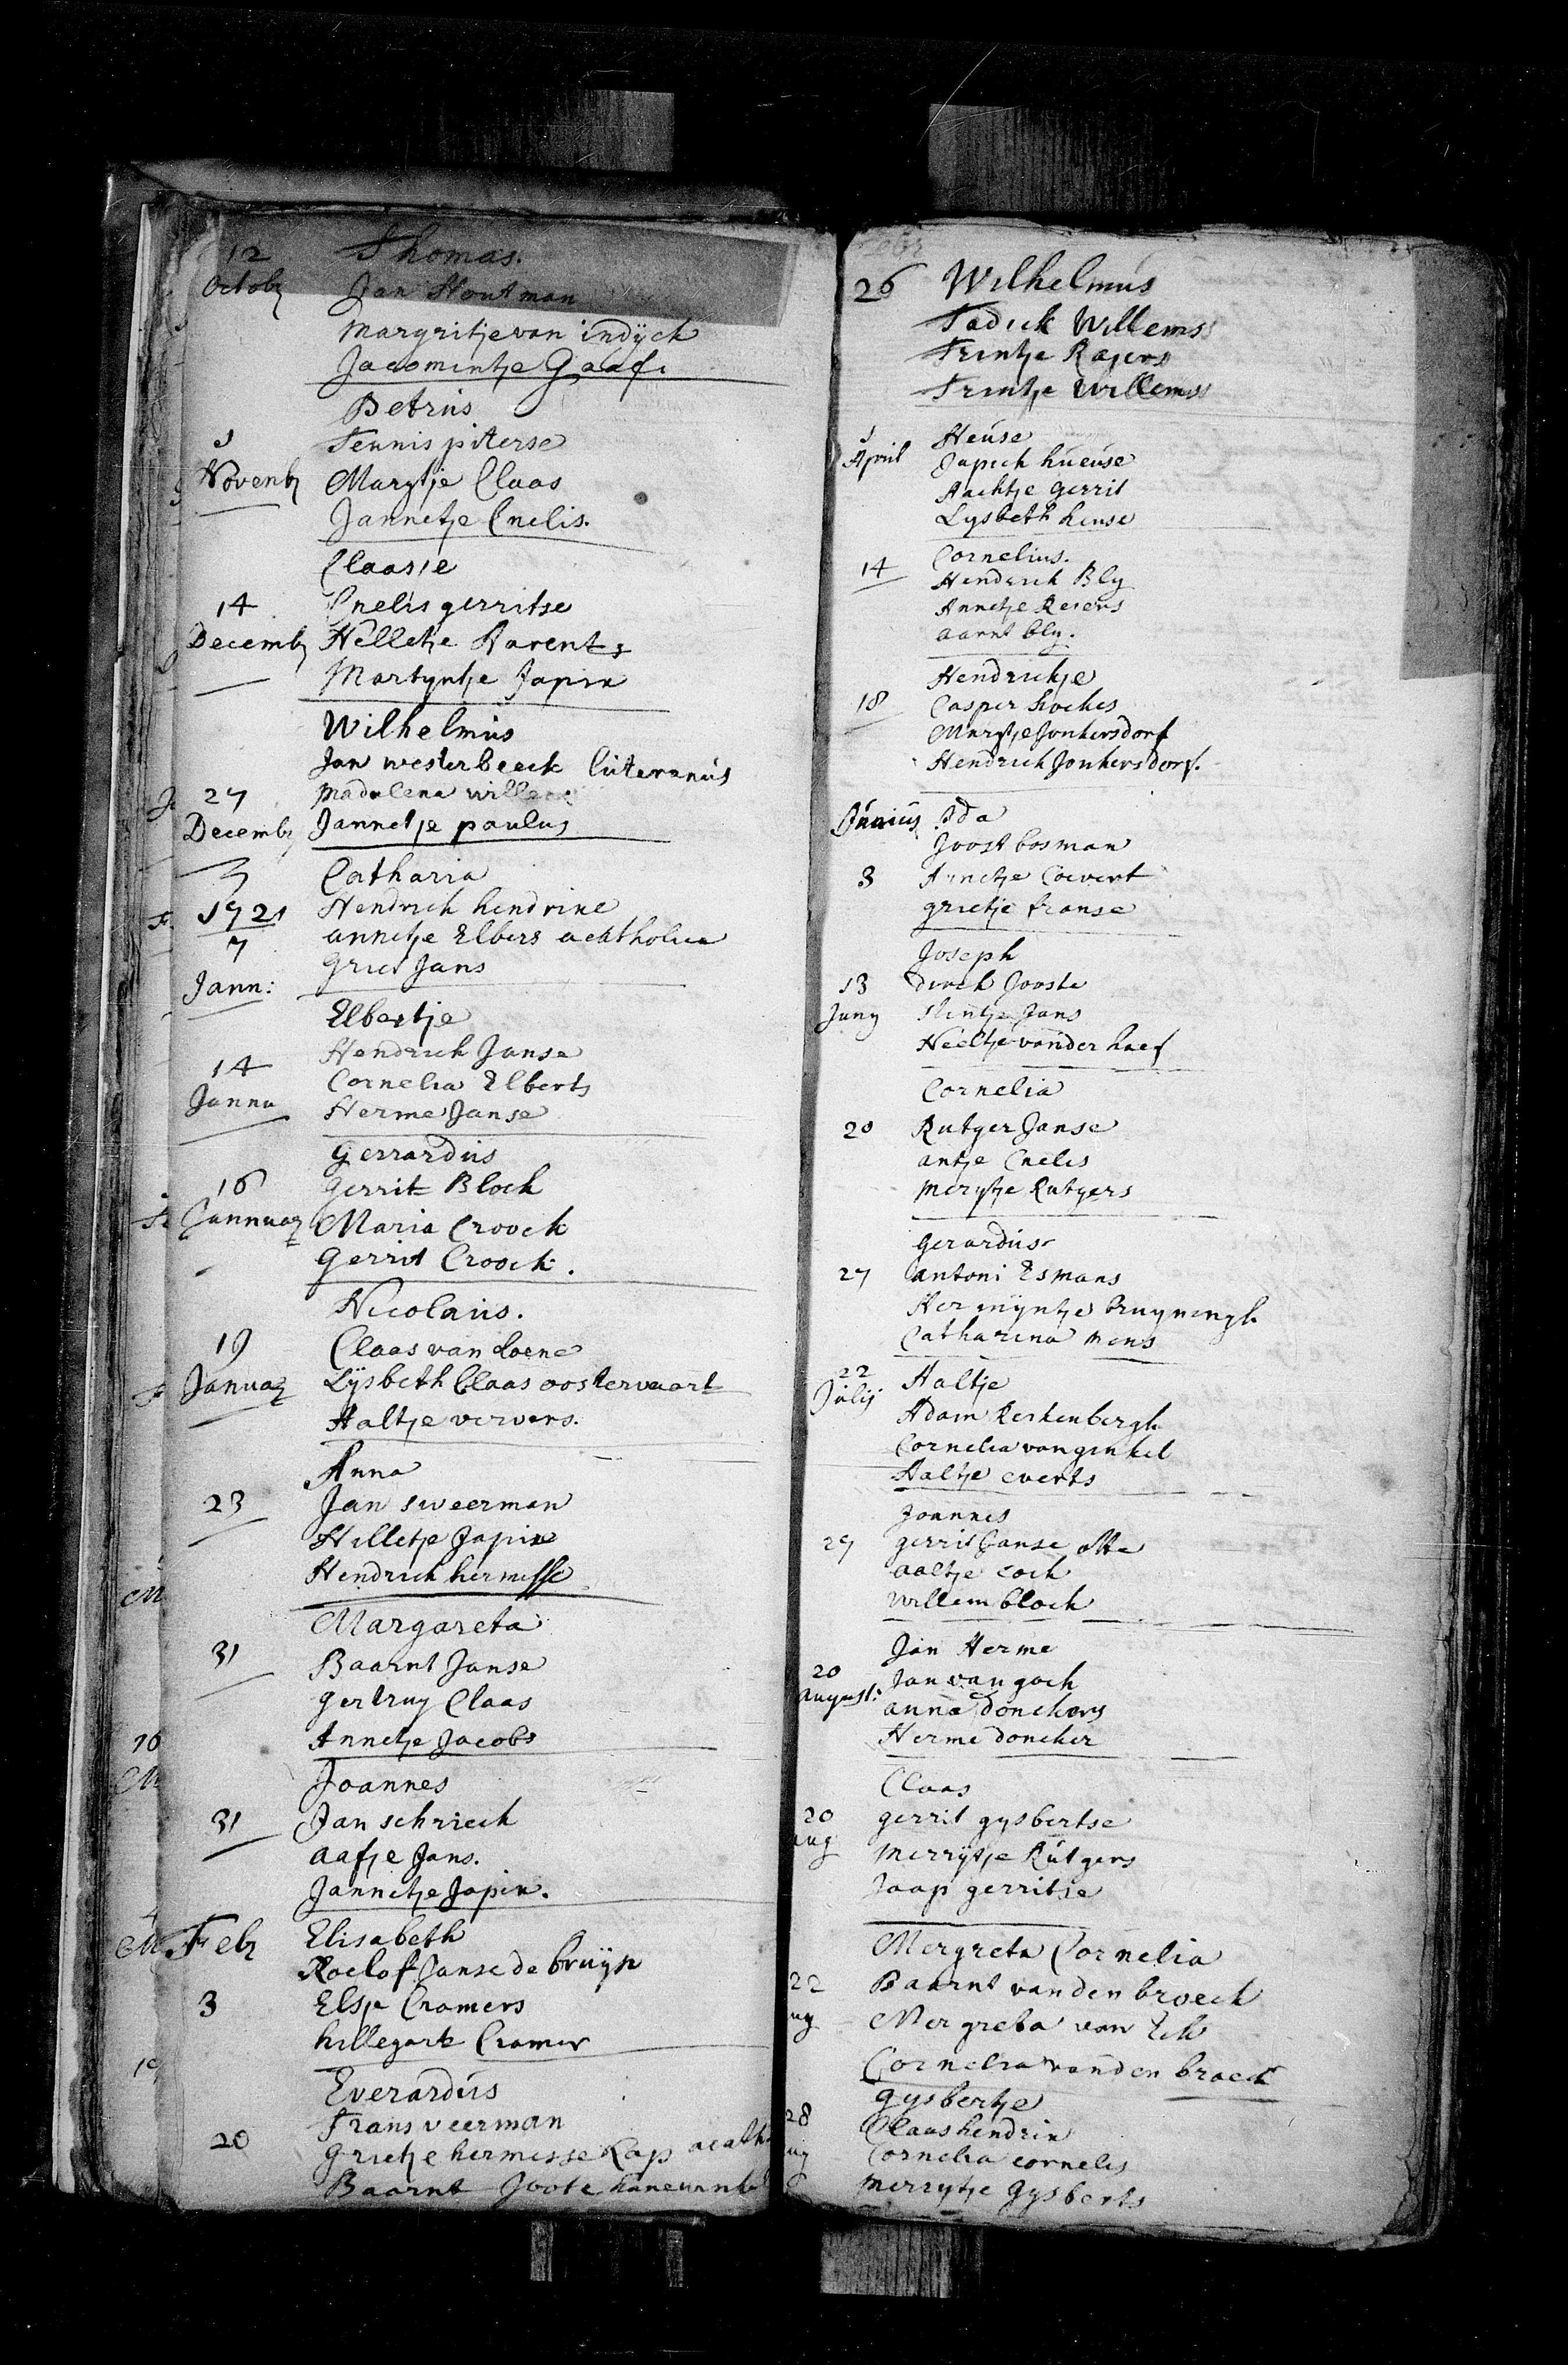 12 Thomas.
Octobr Jan Houtman
Margritje van indÿck
Jacomintje Gaaf.
Petrus
1 Tennis piterse
Novembr Marytje Claas
Jannetje Cnelis.
Claasie
14 Cnelis gerritse
Decembr Hilletje Barents
Martyntje Japix
Wilhelmus
Jan westerbeeck luteranus
27 Madalena willems
Decembr Jannetje paulus
Catharia
1721 Hendrick hendrixe
7 annetje Elbers acatholica
Jann: Griet Jans
Elbertje
Hendrick Janse
14 Cornelia Elberts
Janna Herme Janse
Gerrardus
16 Gerrit Block
Jannuar Maria Croock
Gerrit Croock.
Nicolaus.
19 Claas van Loene
Januar Lÿsbeth Claas oostervaart
Aaltje ververs.
Anna
23 Jan sweerman
Hilletje Japixe
Hendrick hermesse
Margareta
31 Baarnt Janse
Gertruy Claas
Annetje Jacobs
Joannes
31 Jan schrieck
aafje Jans.
Jannetje Japix.
Febr Elisabeth
Roelof Janse de bruÿn
3 Elsje Cramers
hillegart Cramer
Everardus
Frans veerman
20 Grietje hermesse Kap acath
Baarnt Joote
26 Wilhelmus
Tadick Willems
Trintje Rajers
Trintje Willems
1 Heuse
April Japick hueuse
Aachtje Gerrit
Lysbeth heuse
Cornelius.
14 Hendrick Bly
Annetje Reiers
aarnt bly.
Hendrickje
18 Casper hockes
Marytje Jonkersdorf
Hendrick Jonkersdorf.
Junius Ida
Joost bosman
3 Annetje Coevert
grietje franse
Joseph
13 dirck Jooste
Juny Stintje Jans
Neeltje vander hoef
Cornelia
20 Rutger Janse
antje Cnelis
Merytje Rutgers
Gerardus
27 antoni Esmans
Hermÿntje bruyningh
Catharina mens
22 Aaltje
Julij Adam Kerkenbergh
Cornelia van ginkel
Aaltje everts
Joannes
29 gerrit Janse otte
aaltje cock
willem block
Jan Herme
20 Jan van goch
august: anna donckers
Herme doncker
Claas
20 gerrit gysbertse
aug Merrÿtje Rutgers
Jaap gerritse
Mergreta Cornelia
22 Baarnt van den broeck
ug Mergreta van Eck
Cornelia vanden broeck
gysbertje
28 Claas hendrix
ug Cornelia cornelis
Merrytje Gysberts